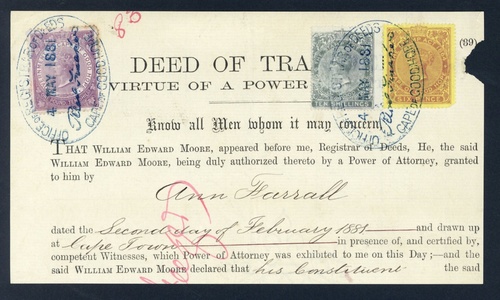 80
(89)
DEED OF TRA
VIRTUE OF A POWER
OFFICE OF REGISTRAR OF DEEDS
CAPE OF GOOD HOPE
4 MAY 1881
TEN SHILLINGS
SIXPENCE
OFFICE OF REGISTRAR OF DEEDS
CAPE OF GOOD HOPE
4 MAY 1881
Know all Men whom it may concern,
THAT WILLIAM EDWARD MOORE, appeared before me, Registrar of Deeds, He, the said
WILLIAM EDWARD MOORE, being duly authorized thereto by a Power of Attorney, granted
to him by
Ann Farrall
dated the Second day of February 1881 and drawn up
at Cape Town in presence of, and certified, by
competent Witnesses, which Power of Attorney was exhibited to me on this Day;—and the
said WILLIAM EDWARD MOORE declared that his Constituent the said